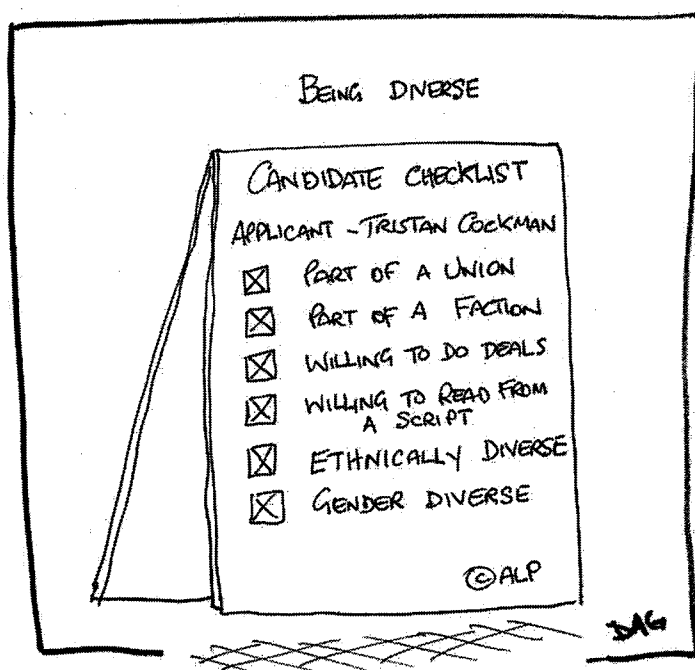 BEING DIVERSE
CANDIDATE CHECKLIST
APPLICANT - TRISTAN COCKMAN
PART OF A UNION
PART OF A FACTION
WILLING TO DO DEALS
WILLING TO READ FROM
A SCRIPT
ETHNICALLY DIVERSE
GENDER DIVERSE
© ALP
DAG